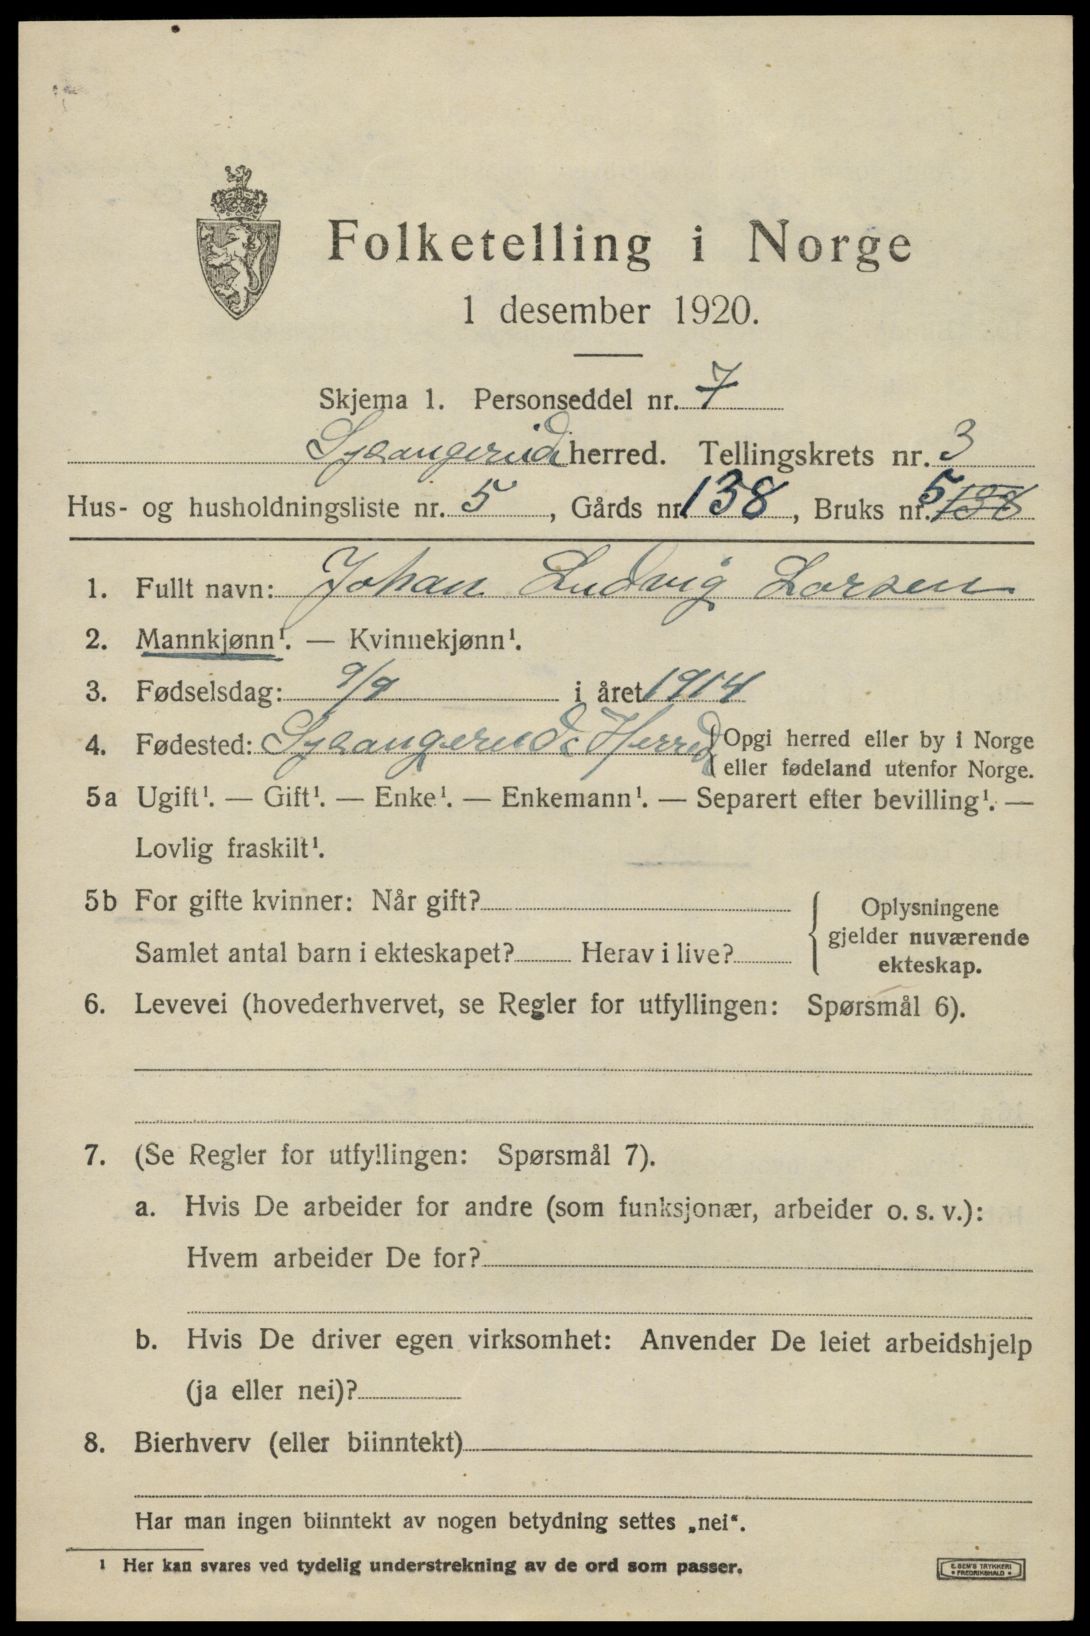 Folketelling i Norge
1 desember 1920.
Skjema 1. Personseddel nr. 7
herred. Tellingskrets nr. 3
Hus- og husholdningsliste nr. 5, Gårds nr. 138, Bruks nr. 5 138
1. Fullt navn: Johan Ludvig Larsen
2. Mannkjønn¹. — Kvinnekjønn¹.
3. Fødselsdag: 9/9 i året 1914
4. Fødested: Herred { Opgi herred eller by i Norge
eller fødeland utenfor Norge.
5a Ugift¹. — Gift¹. — Enke¹. — Enkemann¹. — Separert efter bevilling¹. —
Lovlig fraskilt¹.
5b For gifte kvinner: Når gift?
Samlet antal barn i ekteskapet? Herav i live?
Oplysningene
gjelder nuværende
ekteskap.
6. Levevei (hovederhvervet, se Regler for utfyllingen: Spørsmål 6).
7. (Se Regler for utfyllingen: Spørsmål 7).
a. Hvis De arbeider for andre (som funksjonær, arbeider o. s. v.):
Hvem arbeider De for?
b. Hvis De driver egen virksomhet: Anvender De leiet arbeidshjelp
(ja eller nei)?
8. Bierhverv (eller biinntekt)
Har man ingen biinntekt av nogen betydning settes „nei“.
¹ Her kan svares ved tydelig understrekning av de ord som passer.
E. SEM'S TRYKKERI
• FREDRIKSHALD •